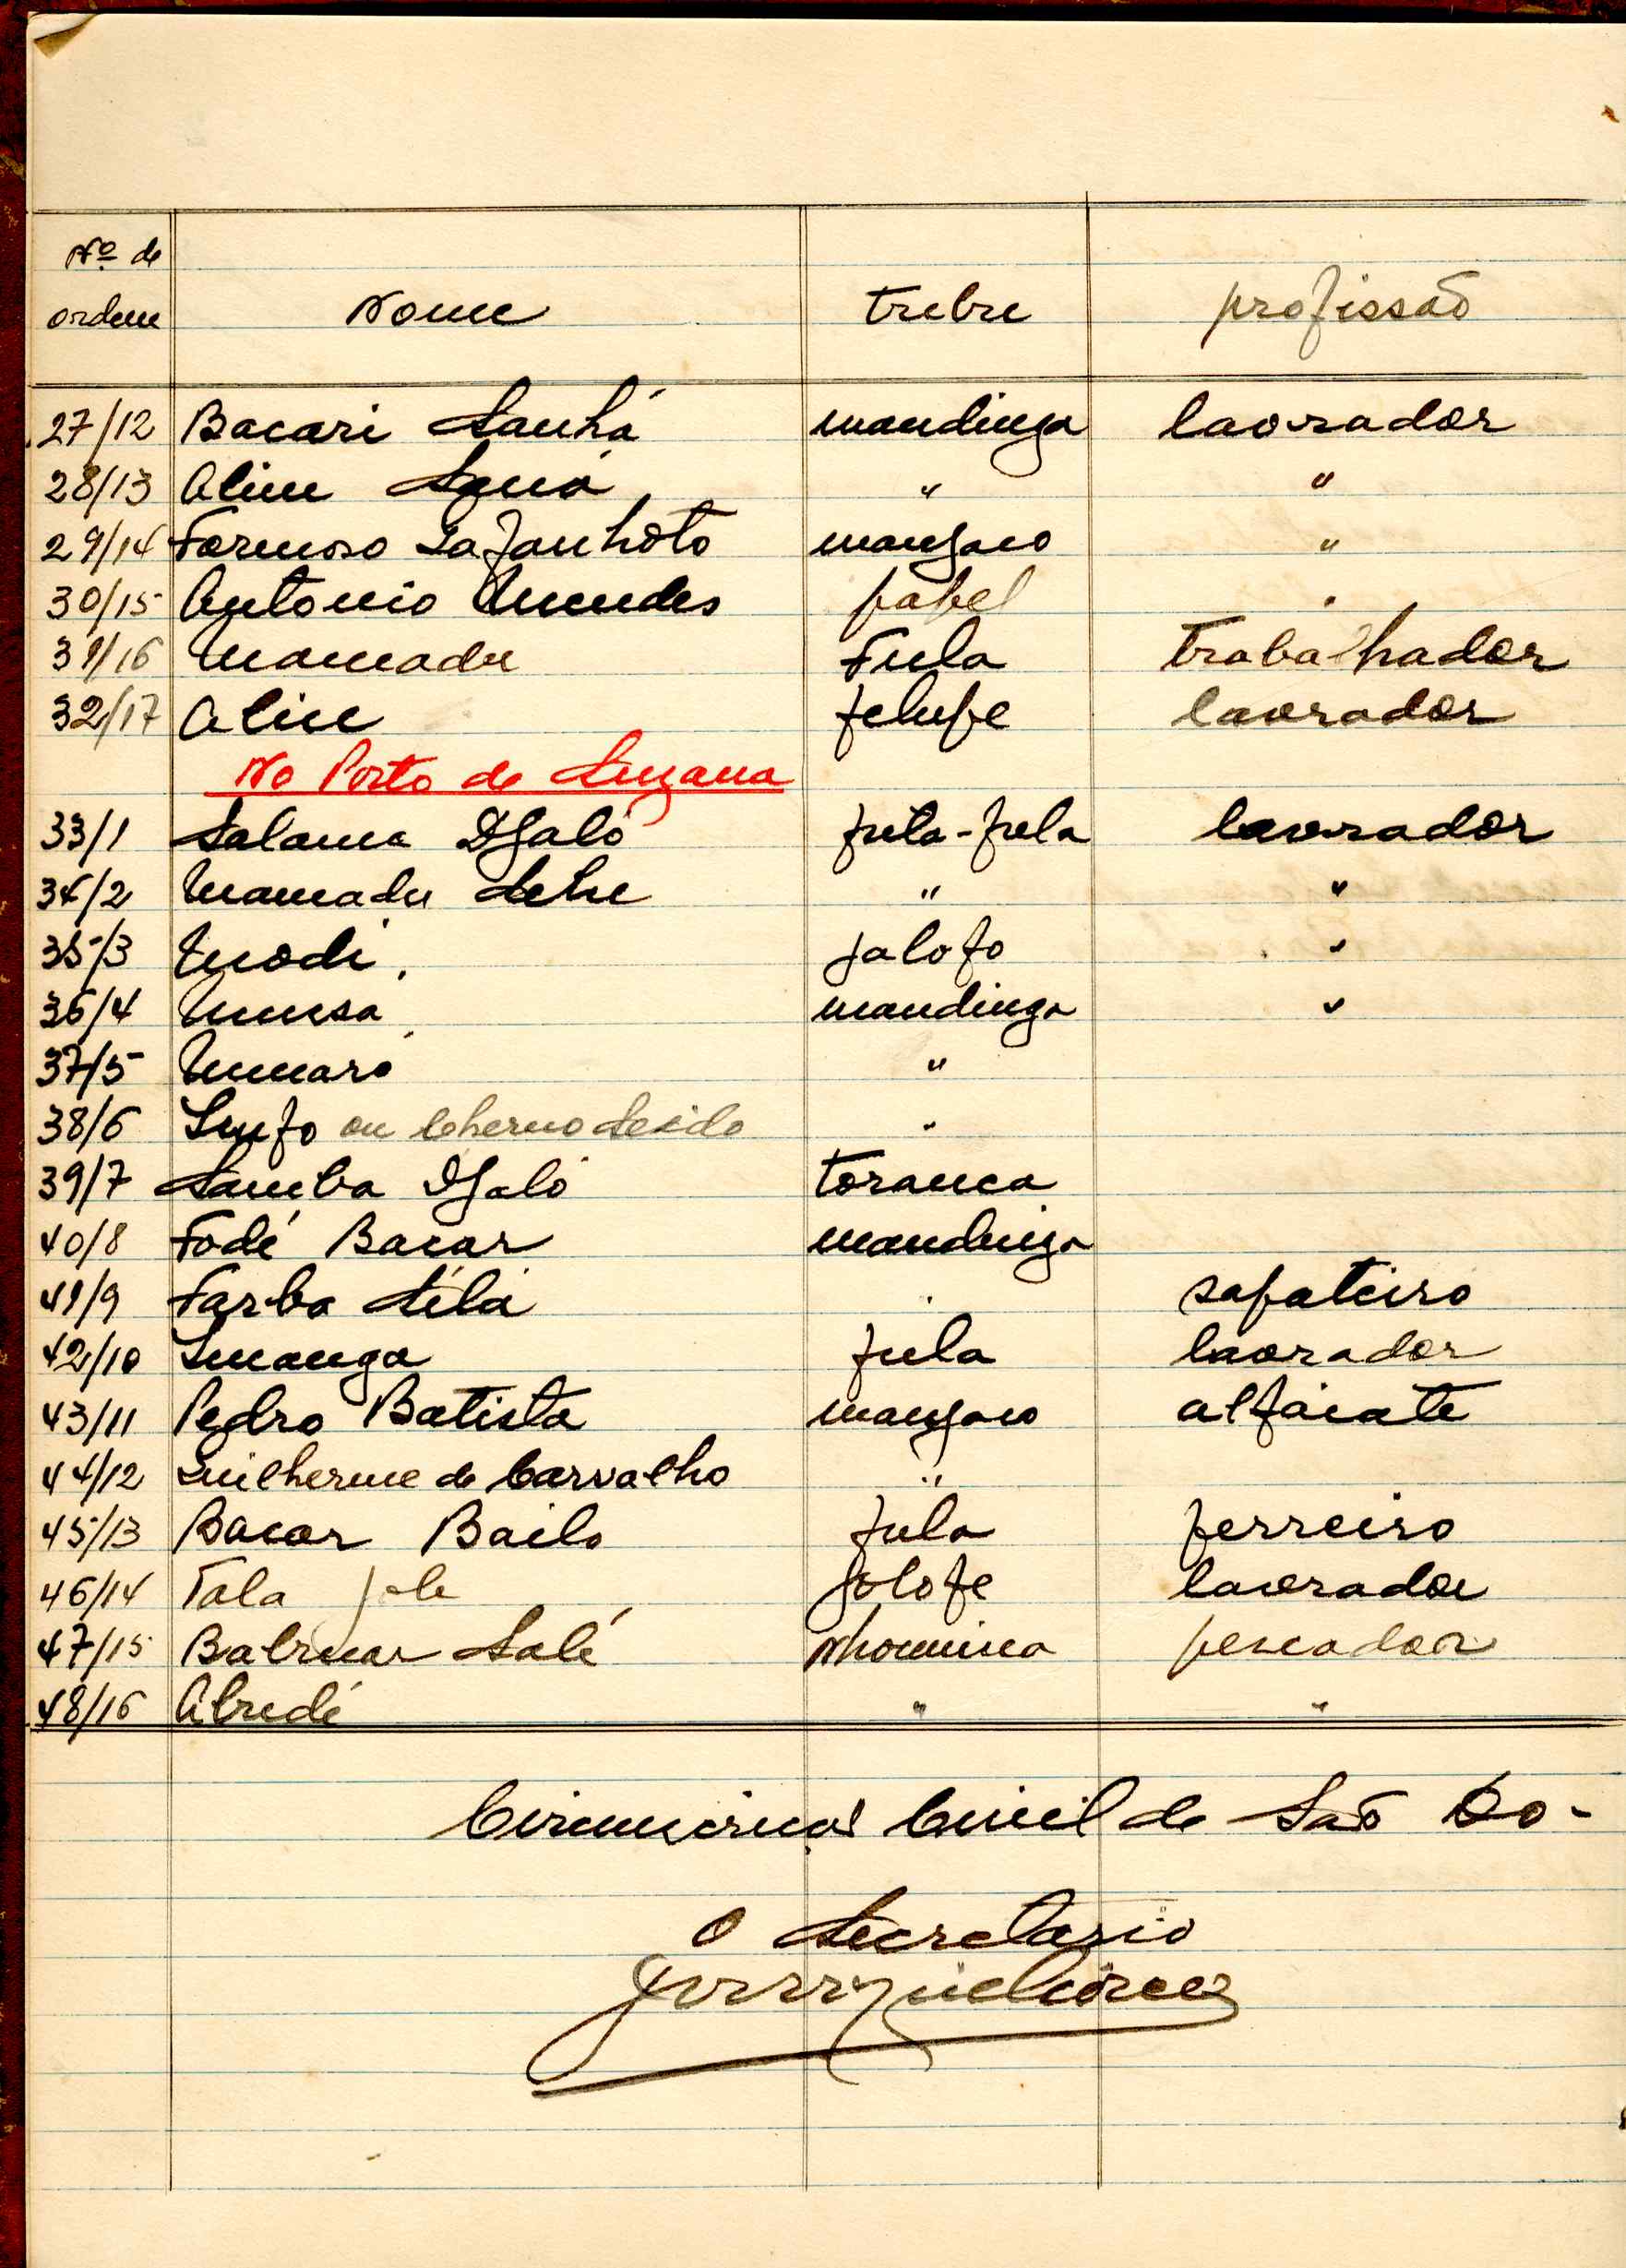 Nº de
ordem Nome trebre profissão
27/12 Bacari Sanhá mandinga lavrador
28/13 Aliu Sana " "
29/14 Formoso Gafanhoto manjaco "
30/15 Antonio Mendes papel "
31/16 Mamadu Fula trabalhador
32/17 Aliu felupe lavrador
No Porto de Suzana
33/1 Djaló futa-fula lavrador
34/2 Mamadu " "
35/3 Modi jalofo "
36/4 Mussa mandinga "
37/5 Umaro "
38/6 ou Cherno Seido "
39/7 Samba Djaló toranca
40/8 Fodé Bacar mandinga
41/9 Farba " sapateiro
42/10 fula lavrador
43/11 Pedro Batista manjaco alfaiate
44/12 Guilherme de Carvalho "
45/13 Bacar Bailo fula ferreiro
46/14 Tala jolofe lavrador
47/15 Salé nhominca pescador
48/16 " "
Civil de São Do-
O Secretario